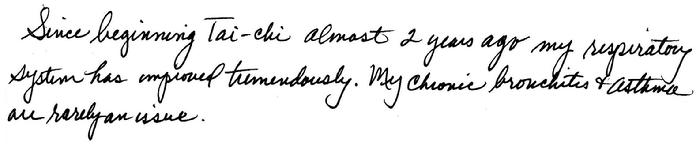 Since beginning Tai-chi almost 2 years ago my respiratory
system has improved tremendously. My chronic bronchitis & asthma
are rarely an issue.